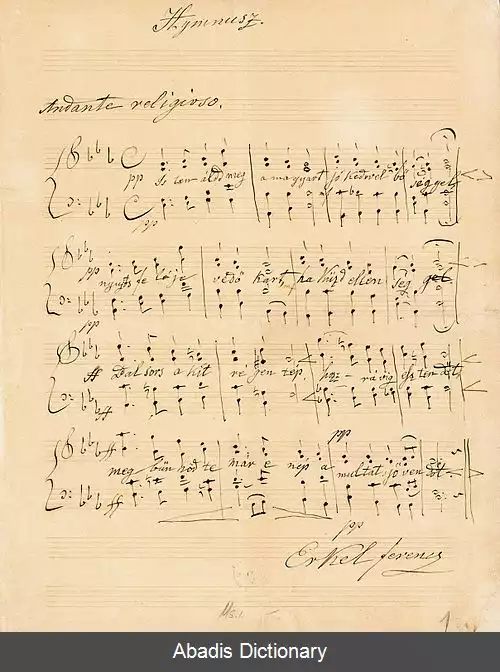 Hymnusz.
Andante religioso.
pp Isten áldd meg a magyart jó kedvel bőséggel
pp
pp nyujts feléje védő kart, ha küzd ellen ség gel
pp
ff Bal sors a kit régen tép, hoz rá víg esztendőt
ff
pp
ff meg bűn hőd te már e nép a multat jövendőt
ff
pp
Erkel ferencz
Ms. 1.
1
Abadis Dictionary